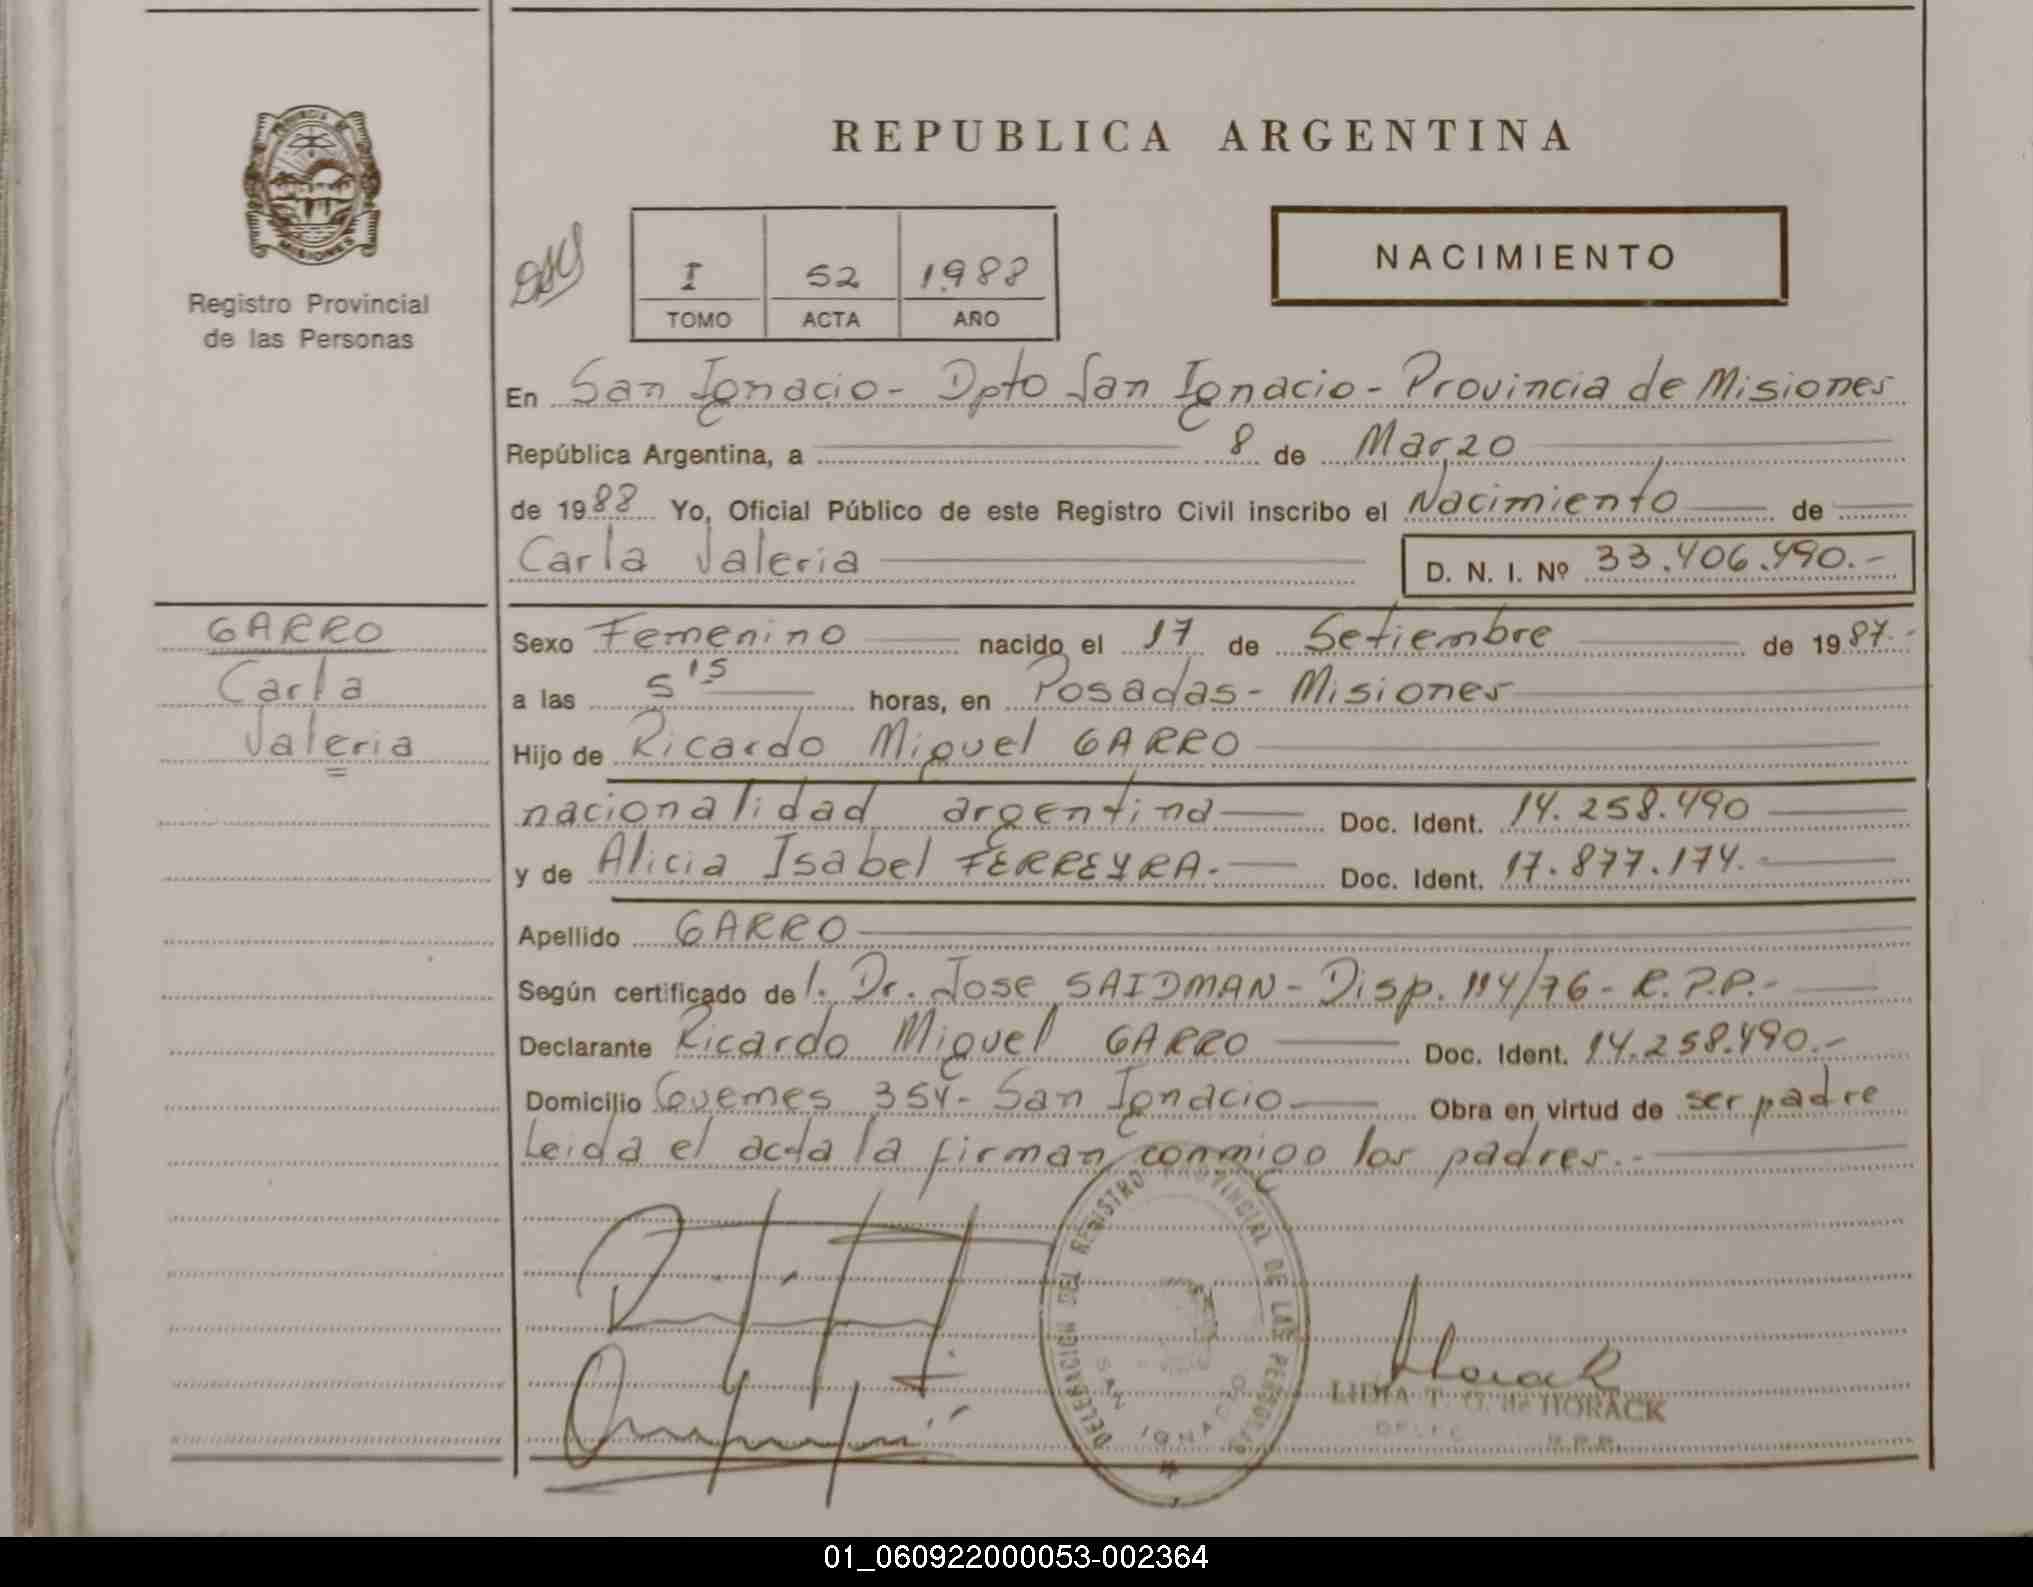 REPUBLICA ARGENTINA
PROVINCIA DE
MISIONES
Registro Provincial
de las Personas
I 52 1988
TOMO ACTA AÑO
NACIMIENTO
En San Ignacio - Dpto San Ignacio - Provincia de Misiones
República Argentina, a 8 de Marzo
de 1988 Yo, Oficial Público de este Registro Civil inscribo el Nacimiento de
Carla Valeria D. N. I. Nº 33.406.490.-
GARRO
Carla
Valeria
Sexo Femenino nacido el 17 de Setiembre de 1987.-
a las 5 15 horas, en Posadas - Misiones
Hijo de Ricardo Miguel GARRO
nacionalidad argentina Doc. Ident. 14.258.490
y de Alicia Isabel FERREYRA.- Doc. Ident. 17.877.174.-
Apellido GARRO
Según certificado del. Dr. Jose SAIDMAN - Disp. 114/76 - R.P.P.-
Declarante Ricardo Miguel GARRO Doc. Ident. 14.258.490.-
Domicilio Guemes 354 - San Ignacio Obra en virtud de ser padre
Leida el acta la firman conmigo los padres.-
DELEGACION DEL REGISTRO PROVINCIAL DE LAS PERSONAS
SAN IGNACIO
Horack
LIDIA T. G. de HORACK
R.P.P.
01_060922000053-002364